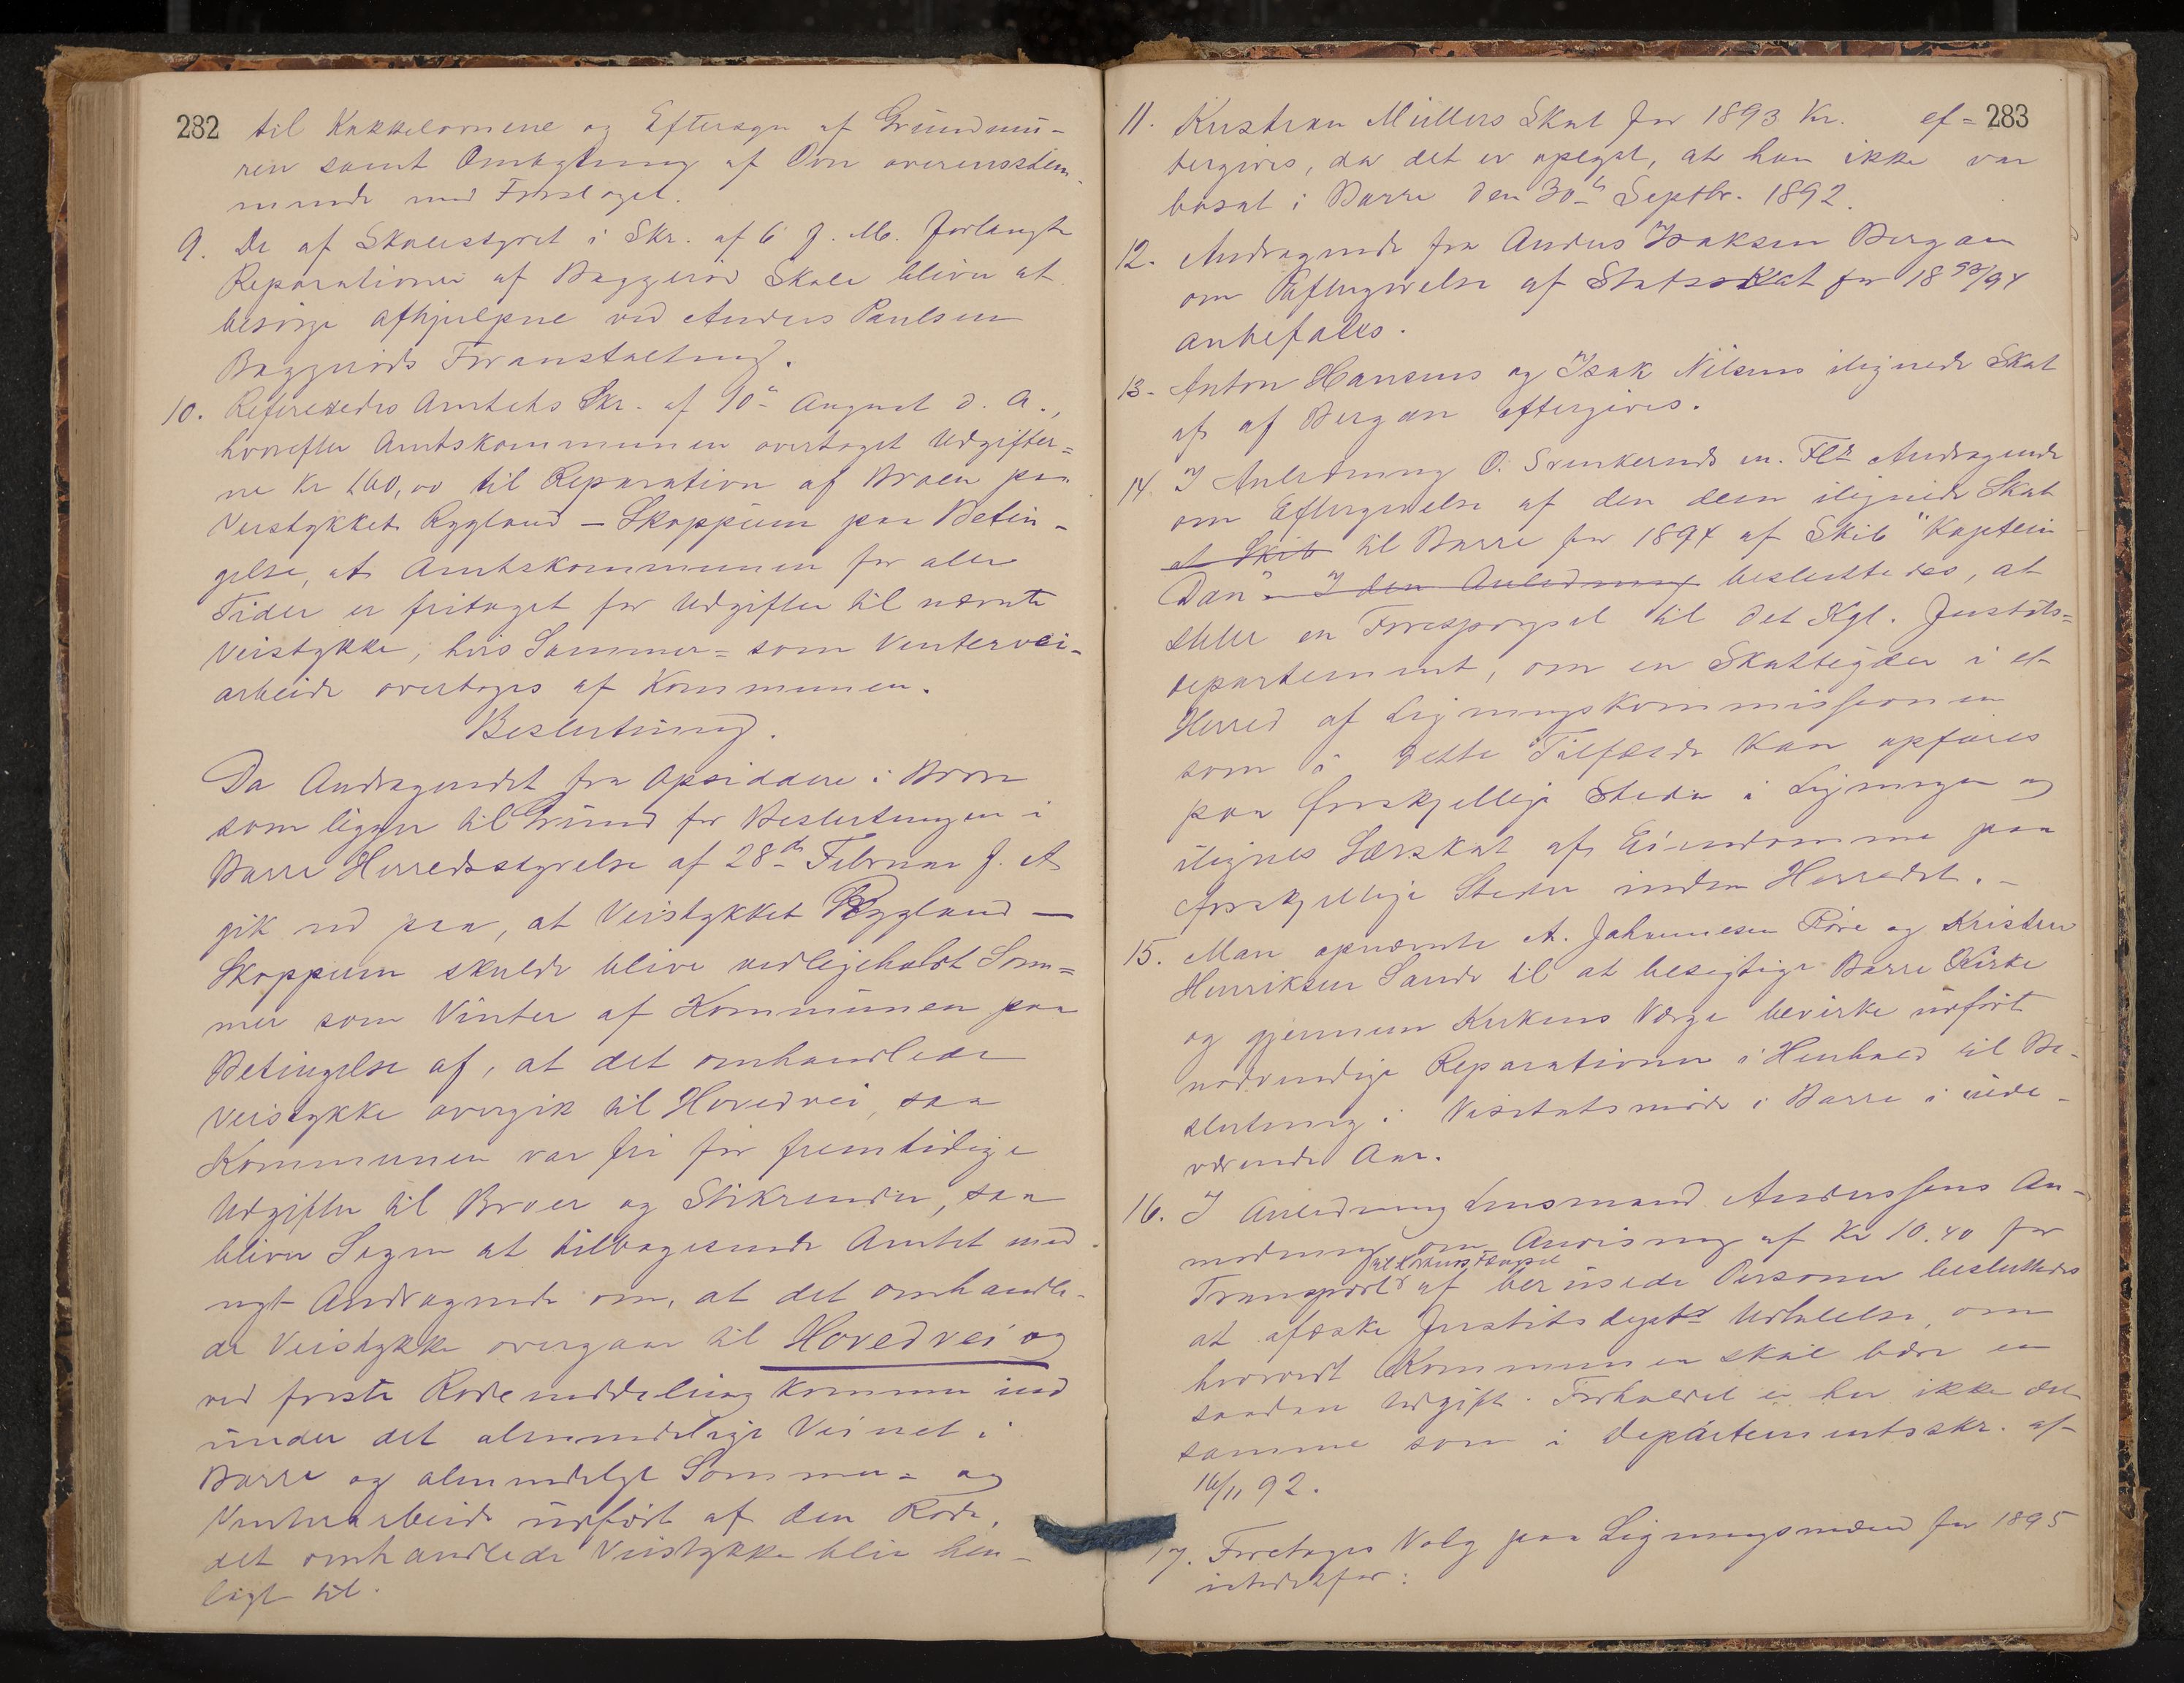 282
til Kakkelovnene og Eftersyn af Grundmu-
ren samt Omlægning af Ovn overensstem-
mende med Forslaget.
9. De af Skolestyret i Skr. af 6 f. M. forlangte
Reparationer af Baggerød Skole bliver at
besørge afhjulpne ved Anders Paulsen
Baggerøds Foranstaltning.
10. Refereredes Amtets Skr. af 10de August d. A.,
hvorefter Amtskommunen overtaget Udgifter=
ne Kr 160,00 til Reparation af Broen paa
Veistykket Rygland – Skoppum paa Betin-
gelse, at Amtskommunen for alle
Tider er fritaget for Udgifter til nævnte
Veistykke, hvis Sommer= som Vintervei-
arbeide overtages af Kommunen.
Beslutning.
Da Andragendet fra Opsiddere i Borre
som ligger til Grund for Beslutningen i
Borre Herredsstyrelse af 28de Februar f. A
gik ud paa, at Veistykket Rygland –
Skoppum skulde blive vedligeholdt Som=
mer som Vinter af Kommunen paa
Betingelse af, at det omhandlede
Veistykke overgik til Hovedvei, saa
Kommunen var fri for fremtidige
Udgifter til Broer og Stikrender, saa
bliver Sagen at tilbagesende Amtet med
nyt Andragende om, at det omhandle-
de Veistykke overgaar til Hovedvei og
ved første Rodeinddeling kommer ind
under det almindelige Veinet i
Borre og almindelige Sommer= og
Vinterarbeide udført af den Rode,
det omhandlede Veistykke blir hen-
lagt til.
283
11. Kristian Müllers Skat for 1893 Kr. ef=
tergives, da det er oplyst, at han ikke var
bosat i Borre den 30te Septbr. 1892.
12. Andragende fra Anders Isaksen Bergan
om Eftergivelse af Statsskat for 1893/94
anbefales.
13. Anton Hansens og Isak Nilsens ilignede Skat
af Bergan eftergives.
14. I Anledning O. m. Fl Andragende
om Eftergivelse af den dem ilignede Skat
et Skib til Borre for 1894 af Skib "Kaptein
Dan" I den Anledning besluttedes, at
stille en Forespørgsel til det Kgl. Justits=
departement, om en Skatteyder i et
Herred af Ligningskommissionen
som i dette Tilfælde kan opføres
paa forskjellige Steder i Ligningen og
ilignes Særskat af Eiendomme paa
forskjellige Steder inden Herredet. –
15. Man opnævnte A. Johannesen Røre og Kristen
Henriksen Sande til at besigtige Borre Kirke
og gjennem Kirkens Værge bevirke udført
nødvendige Reparationer i Henhold til Be-
slutning i Visitatsmøde i Borre i inde-
værende Aar.
16. I Anledning Lensmand Anderssens An-
modning om Anvisning af Kr 10.40 for
Transport til Hortens Fængsel af berusede Personer besluttedes
at afæske Justitsdepts Udtalelse, om
hvorvidt Kommunen skal bære en
saadan Udgift. Forholdet er her ikke det
samme som i Departementsskr. af
16/11 92.
17. Foretages Valg paa Ligningsmænd for 1895
istedetfor: